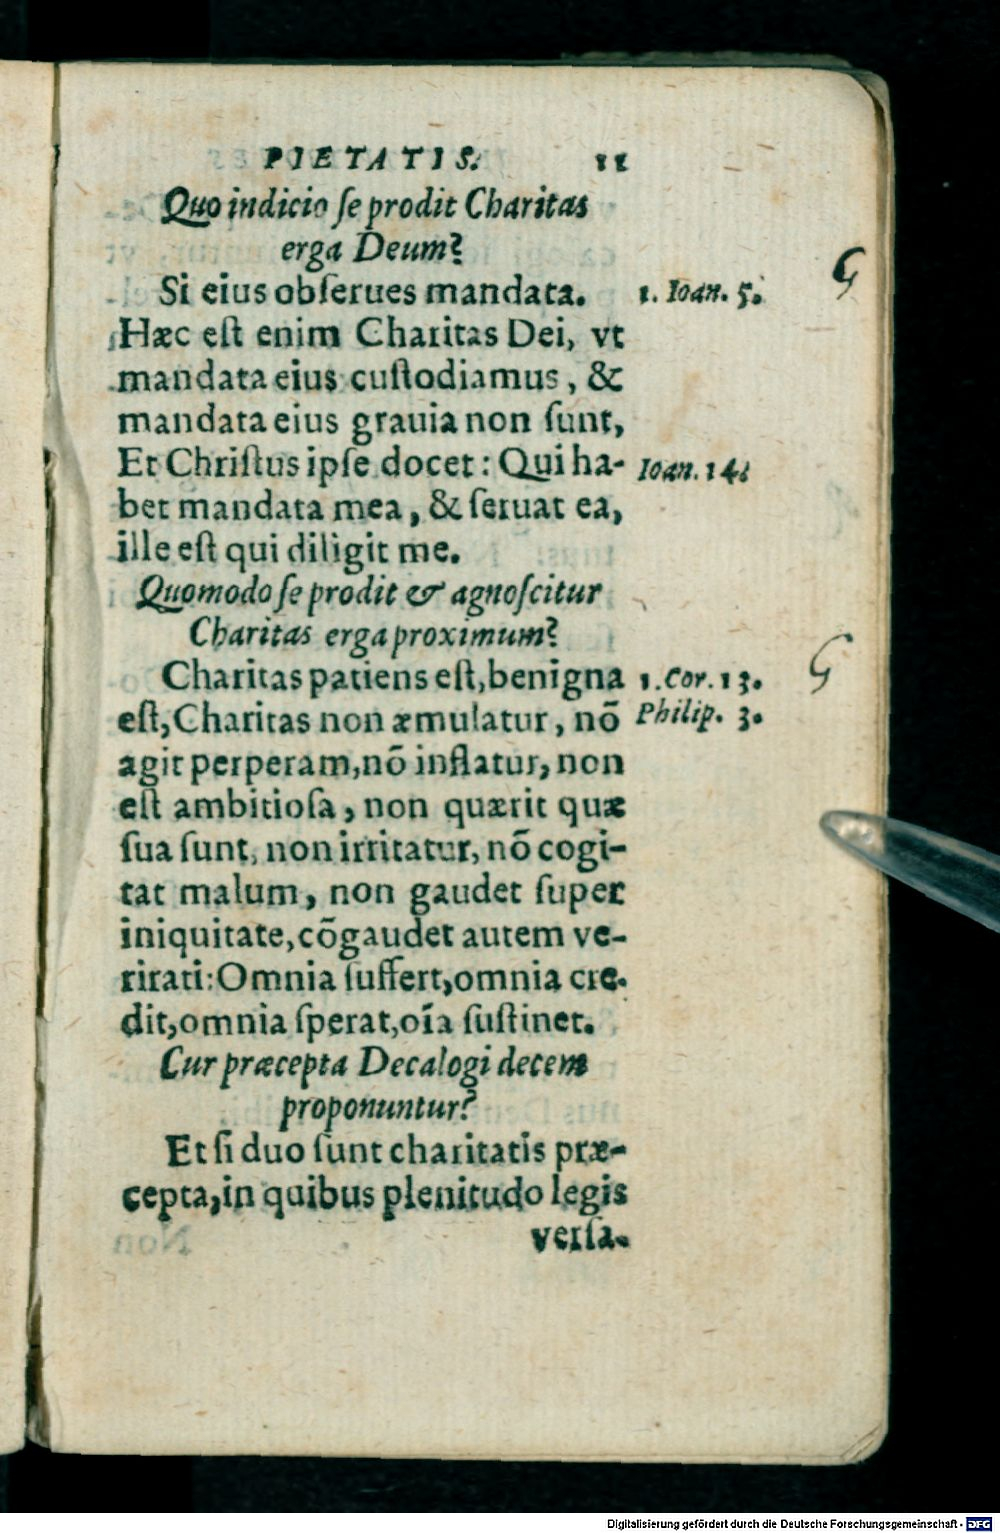 PIETATIS. 11
Quo indicio ſe prodit Charitas
erga Deum?
Si eius obſerues mandata. 1. Ioan. 5.
Hæc eſt enim Charitas Dei, vt
mandata eius cuſtodiamus, &
mandata eius grauia non ſunt,
Et Chriſtus ipſe docet: Qui ha- Ioan. 14.
bet mandata mea, & ſeruat ea,
ille eſt qui diligit me.
Quomodo ſe prodit & agnoſcitur
Charitas erga proximum?
Charitas patiens eſt, benigna 1. Cor. 13.
eſt, Charitas non æmulatur, nō Philip. 3.
agit perperam, nō inflatur, non
eſt ambitioſa, non quærit quæ
ſua ſunt, non irritatur, nō cogi-
tat malum, non gaudet ſuper
iniquitate, cōgaudet autem ve-
ritati: Omnia ſuffert, omnia cre-
dit, omnia ſperat, oīa ſuſtinet.
Cur præcepta Decalogi decem
proponuntur?
Et ſi duo ſunt charitatis præ-
cepta, in quibus plenitudo legis
verſa-
Digitalisierung gefördert durch die Deutsche Forschungsgemeinschaft - DFG